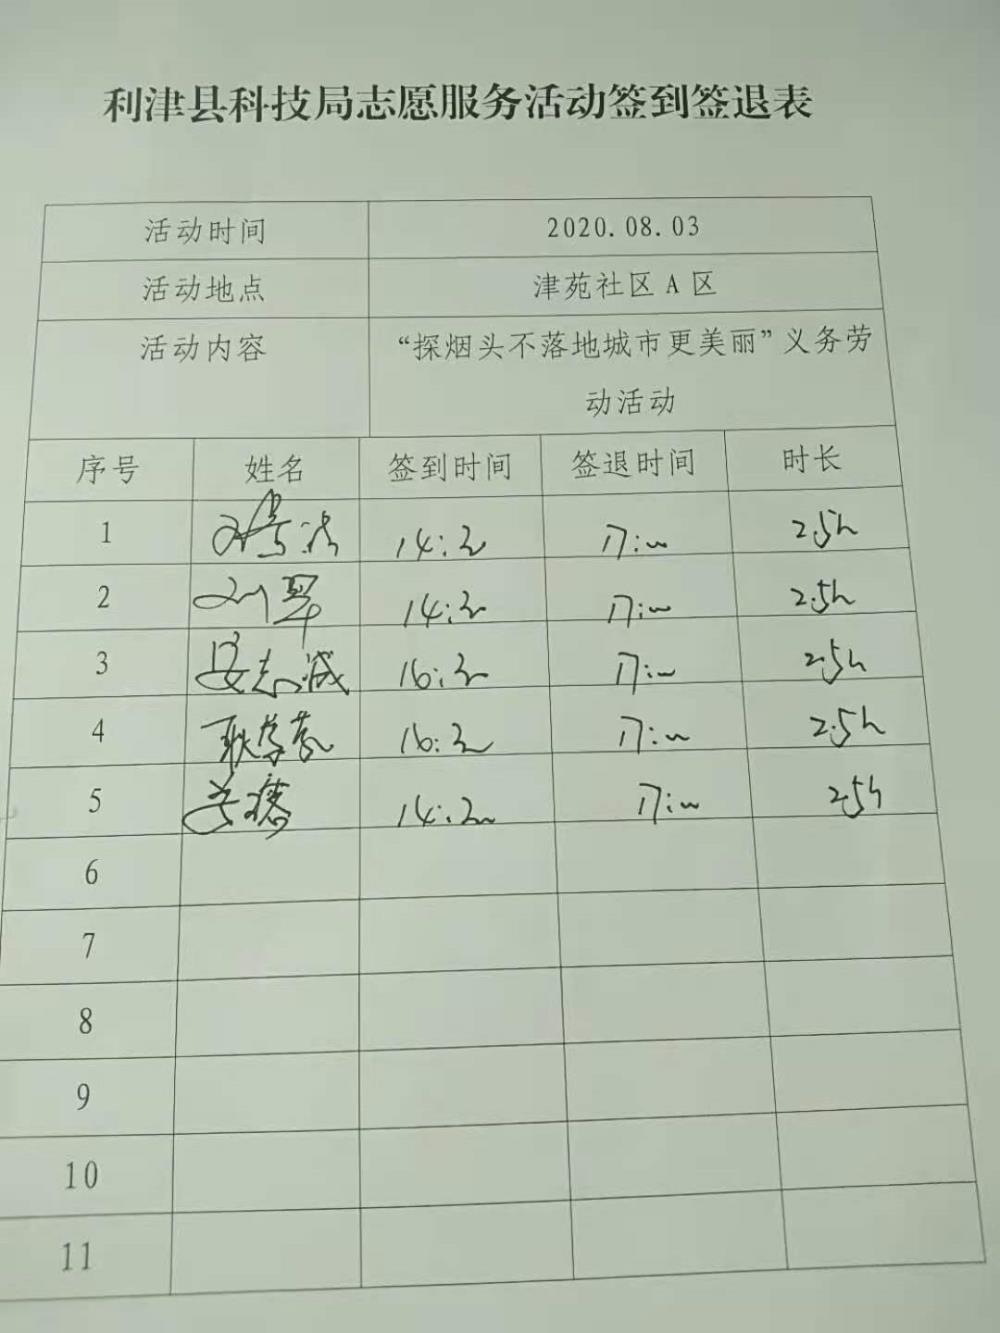 利津县科技局志愿服务活动签到签退表
活动时间 2020.08.03
活动地点 津苑社区 A 区
活动内容 “探烟头不落地城市更美丽”义务劳
动活动
序号 姓名 签到时间 签退时间 时长
1 14:30 17:00 2.5h
2 刘翠 14:30 17:00 2.5h
3 安志诚 16:30 17:00 2.5h
4 16:30 17:00 2.5h
5 14:30 17:00 2.5h
6
7
8
9
10
11